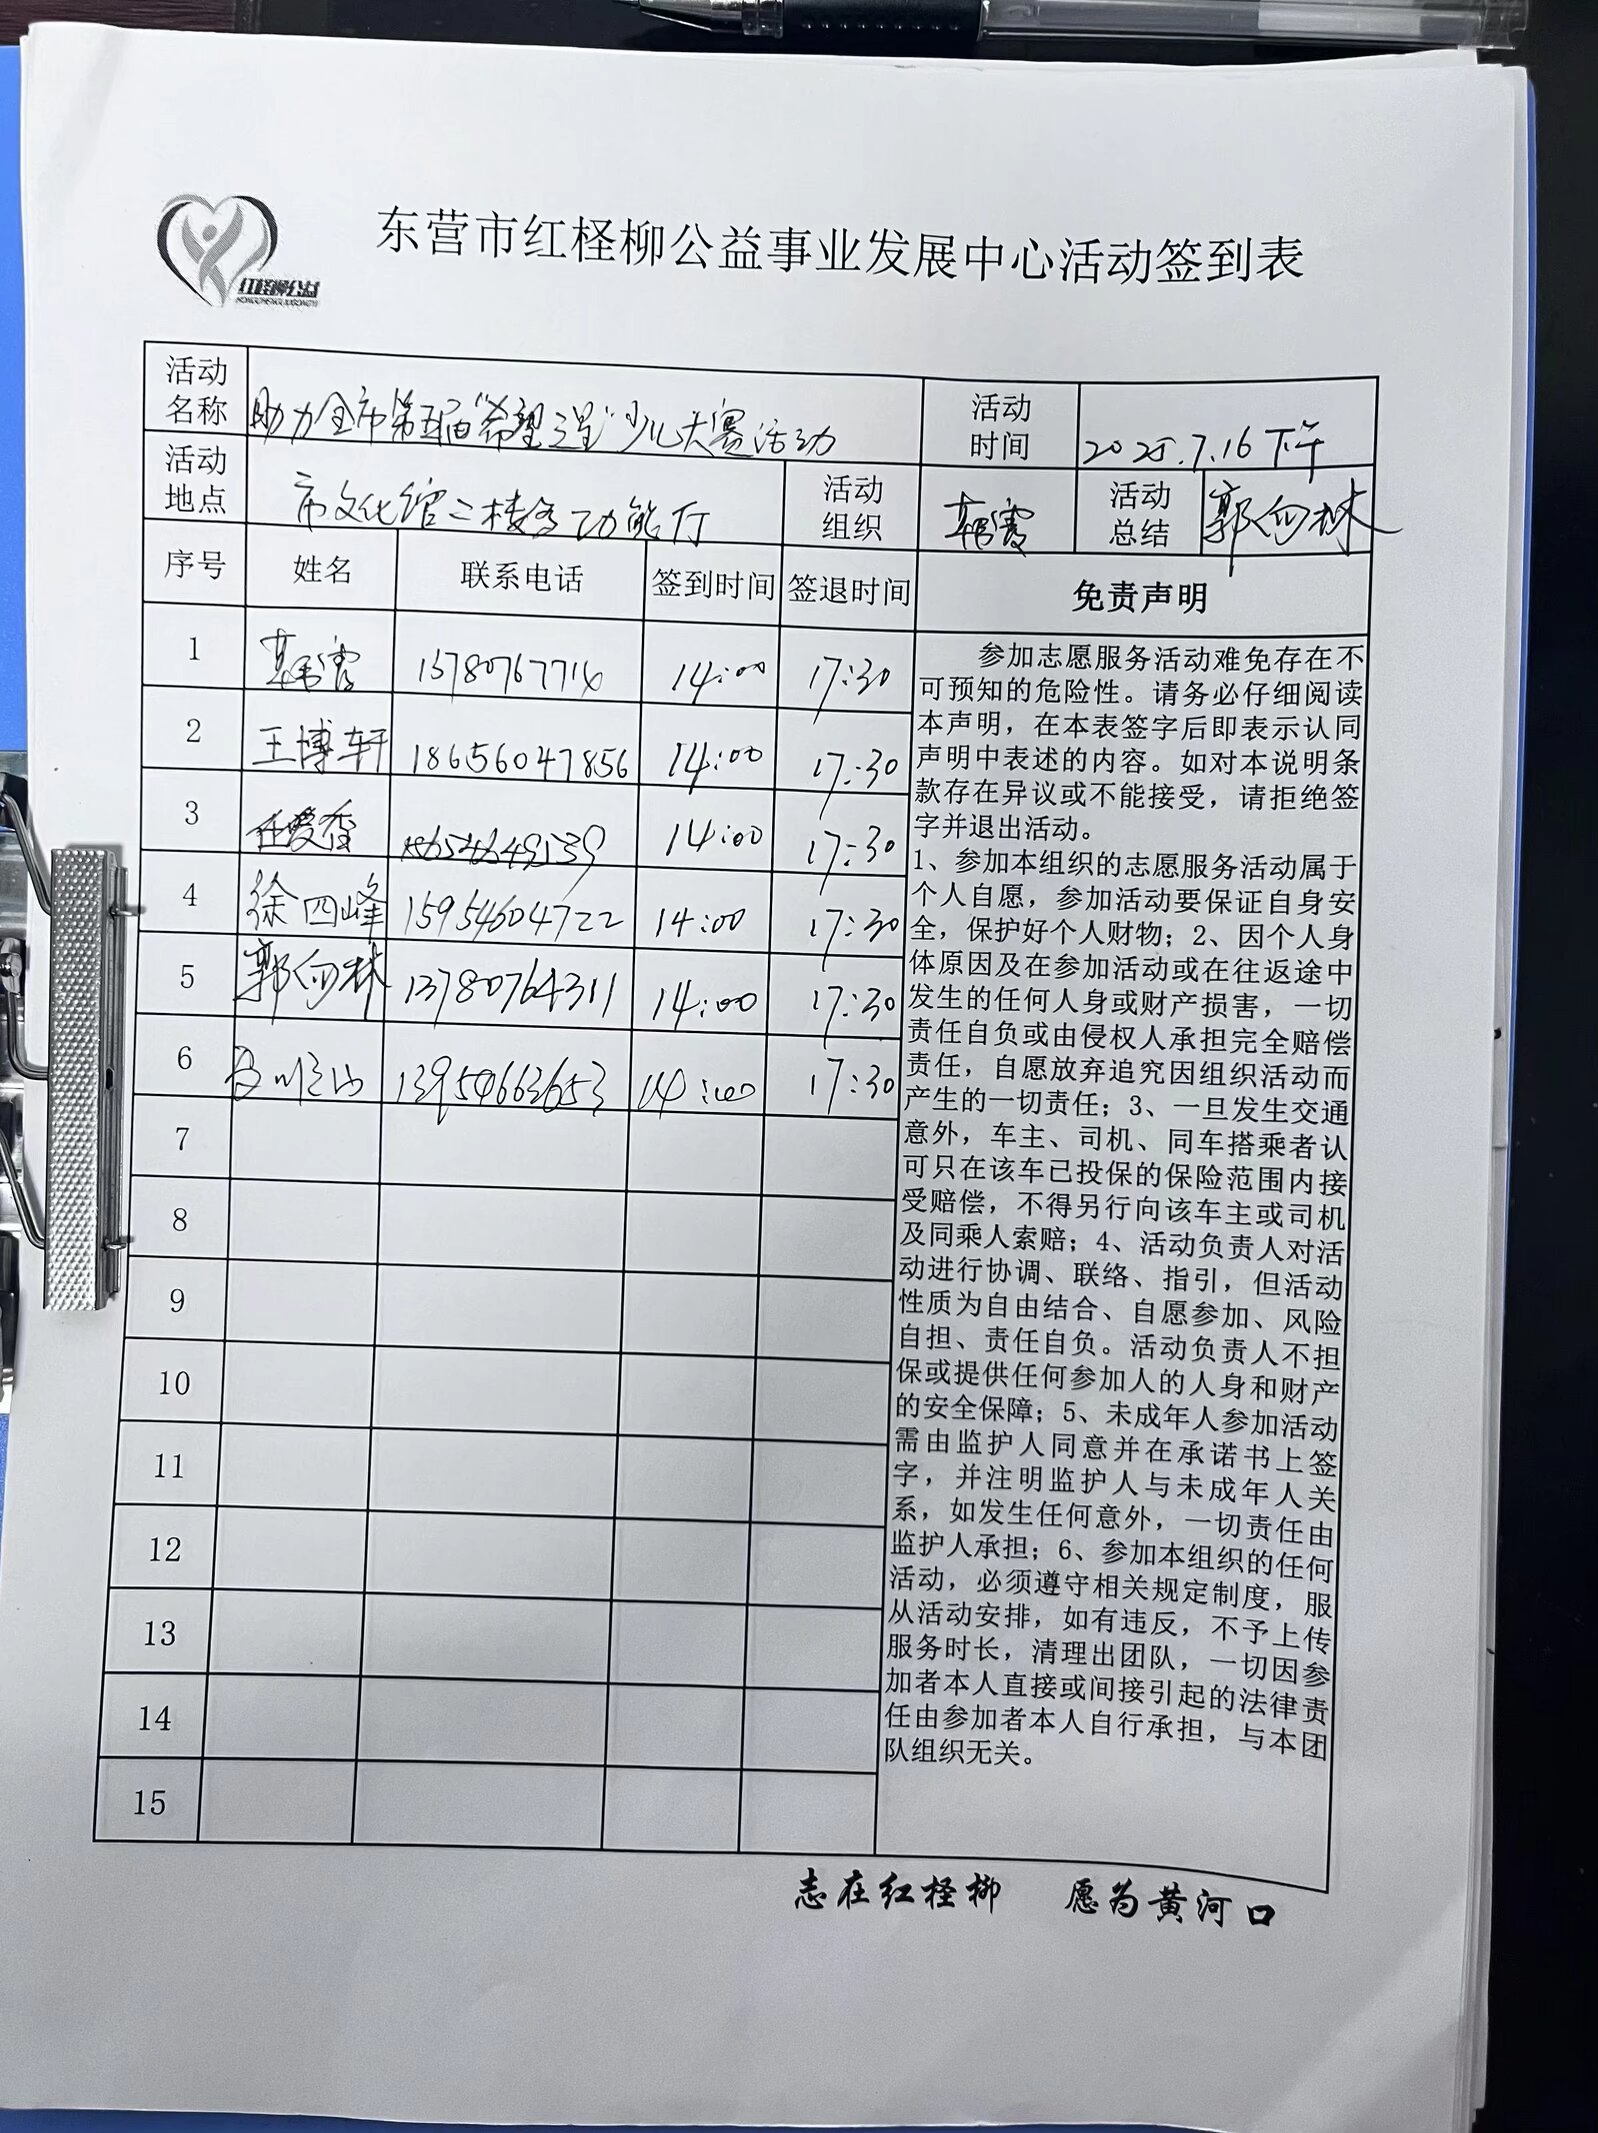 红柽柳公益
东营市红柽柳公益事业发展中心活动签到表
活动名称 助力全市第五届"希望之星"少儿大赛活动 活动时间 2025.7.16 下午
活动地点 市文化馆二楼多功能厅 活动组织 韩霞 活动总结 郭向林
序号 姓名 联系电话 签到时间 签退时间 免责声明
1 韩霞 13780767714 14:00 17:30
2 王博轩 18656047856 14:00 17:30
3 任爱香 14:00 17:30
4 徐四峰 15954604722 14:00 17:30
5 郭向林 13780764311 14:00 17:30
6 13954663653 14:00 17:30
7
8
9
10
11
12
13
14
15
参加志愿服务活动难免存在不
可预知的危险性。请务必仔细阅读
本声明，在本表签字后即表示认同
声明中表述的内容。如对本说明条
款存在异议或不能接受，请拒绝签
字并退出活动。
1、参加本组织的志愿服务活动属于
个人自愿，参加活动要保证自身安
全，保护好个人财物；2、因个人身
体原因及在参加活动或在往返途中
发生的任何人身或财产损害，一切
责任自负或由侵权人承担完全赔偿
责任，自愿放弃追究因组织活动而
产生的一切责任；3、一旦发生交通
意外，车主、司机、同车搭乘者认
可只在该车已投保的保险范围内接
受赔偿，不得另行向该车主或司机
及同乘人索赔；4、活动负责人对活
动进行协调、联络、指引，但活动
性质为自由结合、自愿参加、风险
自担、责任自负。活动负责人不担
保或提供任何参加人的人身和财产
的安全保障；5、未成年人参加活动
需由监护人同意并在承诺书上签
字，并注明监护人与未成年人关
系，如发生任何意外，一切责任由
监护人承担；6、参加本组织的任何
活动，必须遵守相关规定制度，服
从活动安排，如有违反，不予上传
服务时长，清理出团队，一切因参
加者本人直接或间接引起的法律责
任由参加者本人自行承担，与本团
队组织无关。
志在红柽柳 愿为黄河口